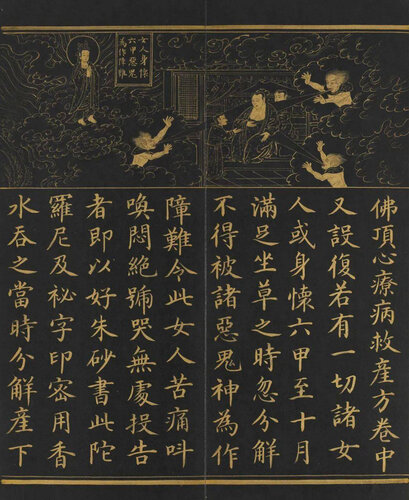 女人身懷
六甲惡鬼
為作障難
佛頂心療病救產方卷中
又設復若有一切諸女
人或身懷六甲至十月
滿足坐草之時忽分解
不得被諸惡鬼神為作
障難令此女人苦痛叫
喚悶絕號哭無處投告
者即以好朱砂書此陀
羅尼及秘字印密用香
水吞之當時分解產下